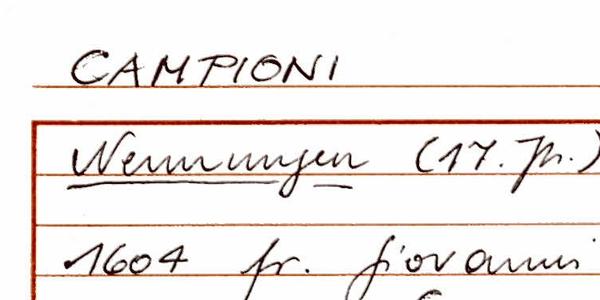 CAMPIONI
Nennungen (17. Jh.)
1604 fr. Giovanni